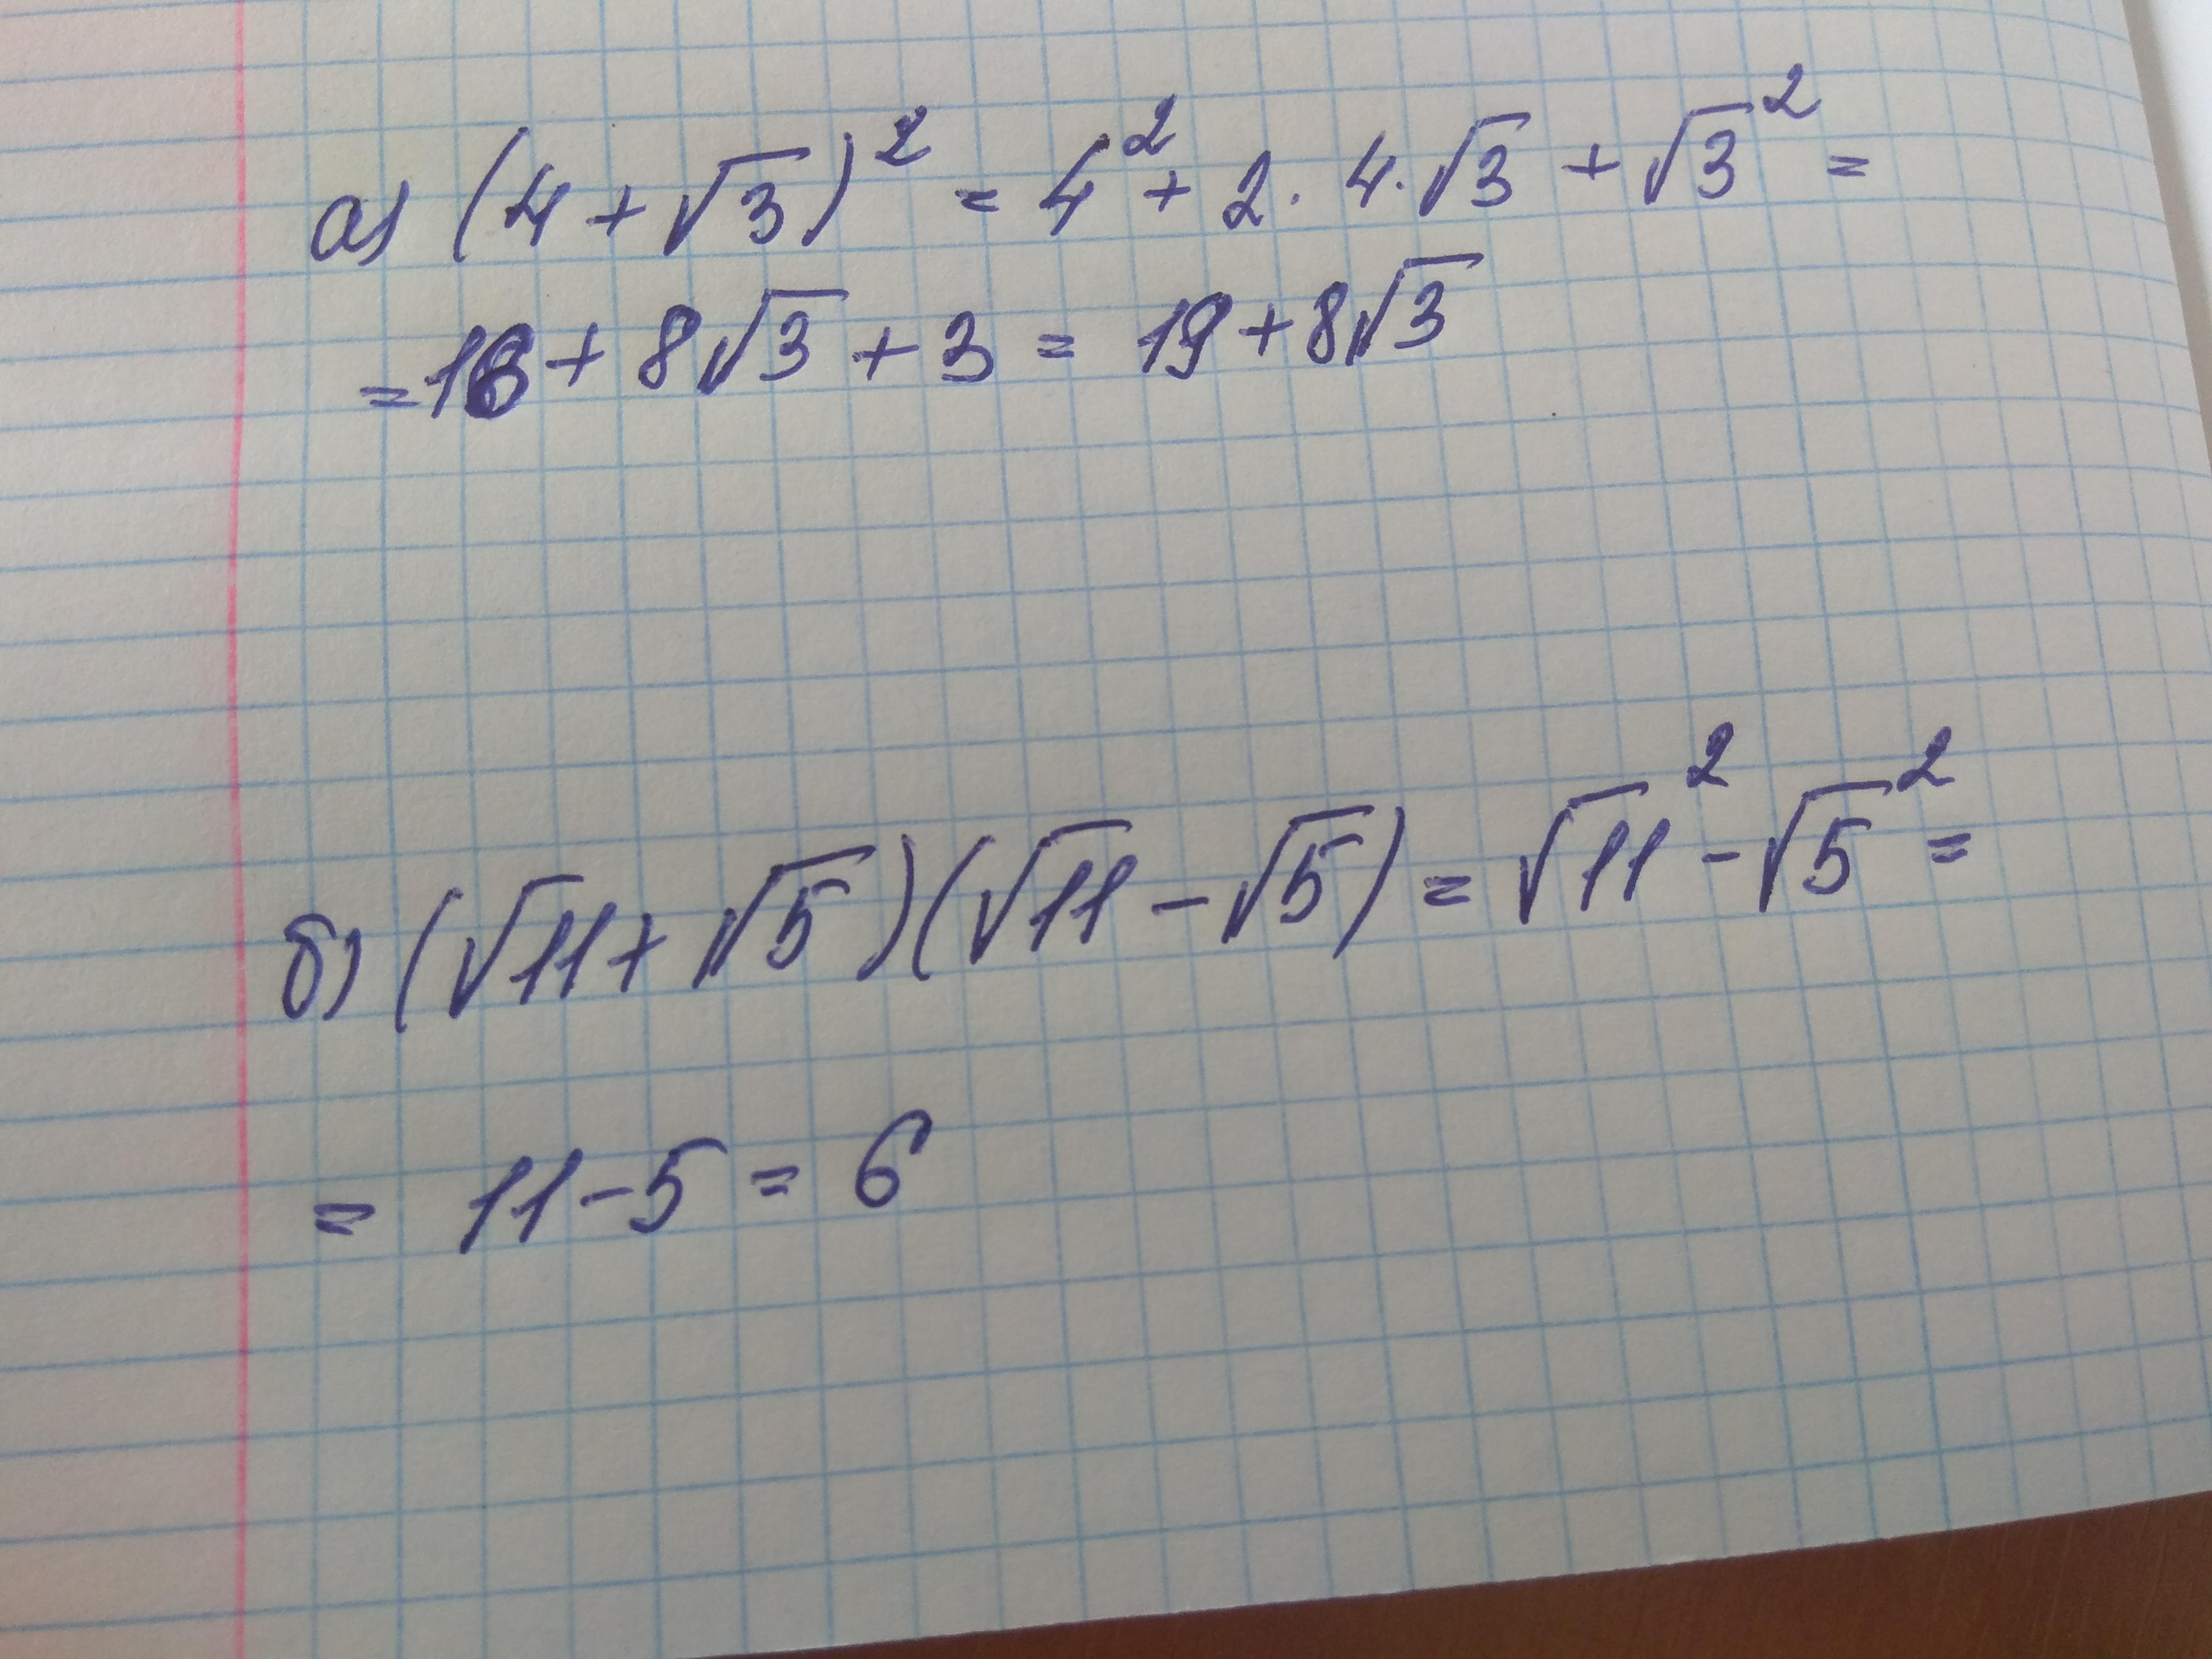 а) (4 + √3)² = 4² + 2 · 4 · √3 + √3² =
= 16 + 8√3 + 3 = 19 + 8√3
б) (√11 + √5)(√11 − √5) = √11² − √5² =
= 11 − 5 = 6